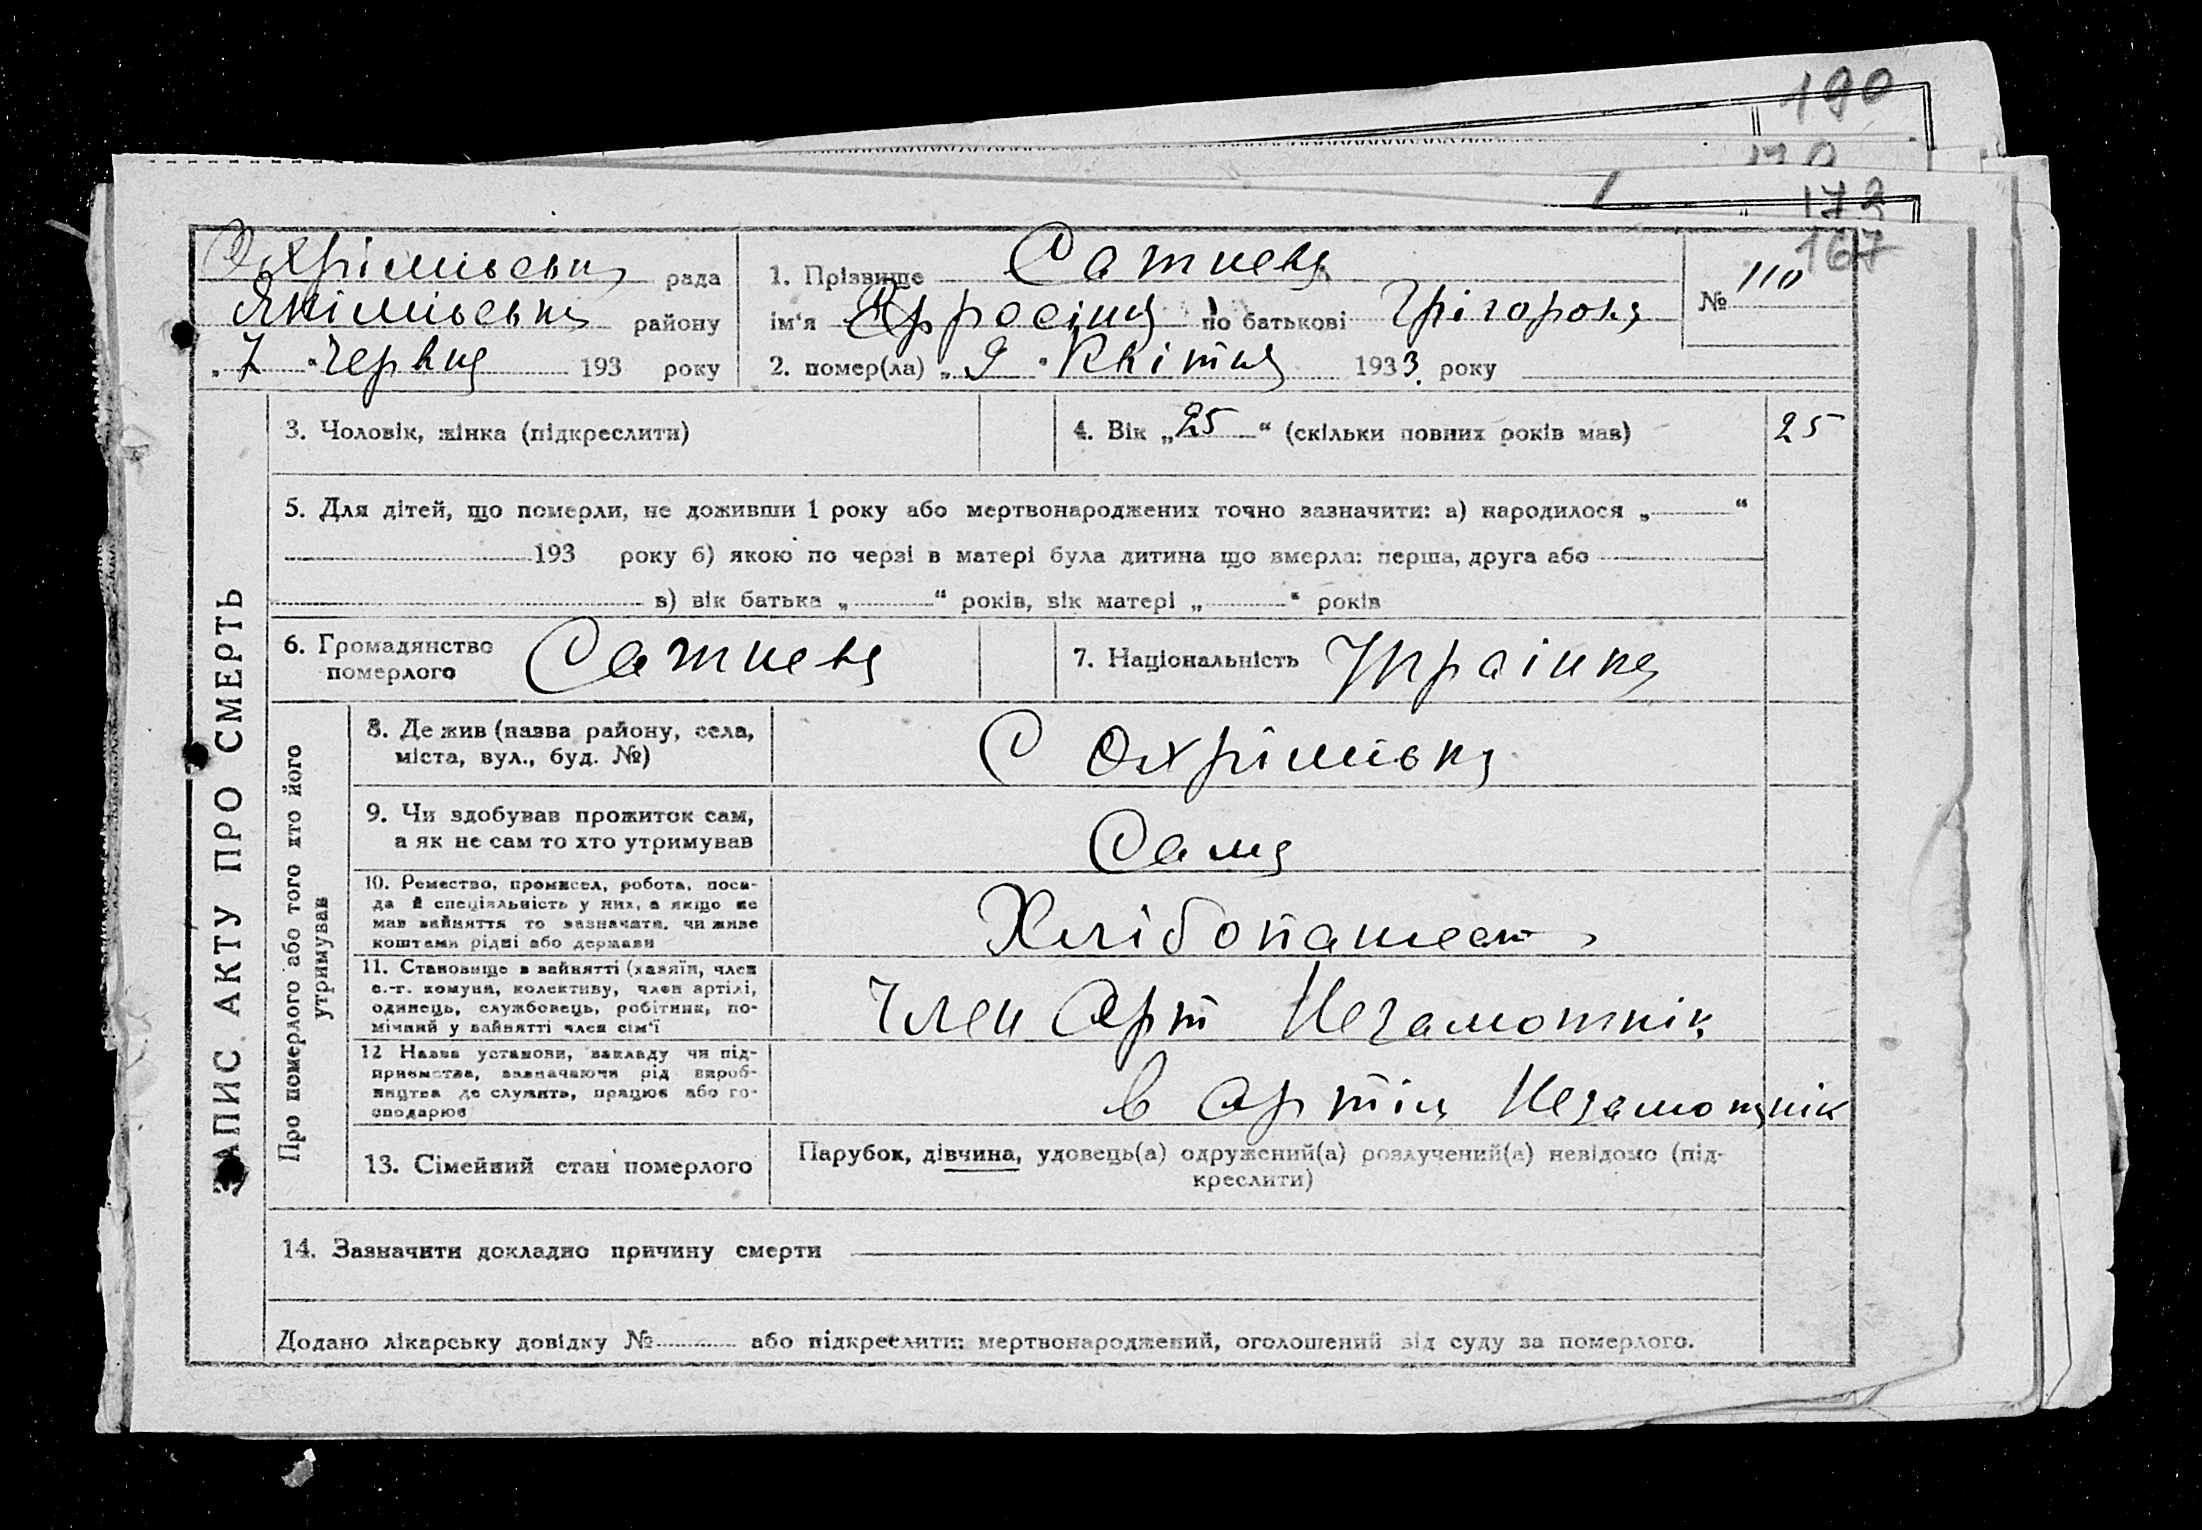 190
173
167
Охрімівська рада
Якімівська району
„ 7 “ Червня 193 року
1. Прізвище Сатнева
ім‘я Єфросінія по батькові Грігорова
2. помер(ла) „ 9 “ Квітня 1933 року
№ 110
ЗАПИС АКТУ ПРО СМЕРТЬ
3. Чоловік, жінка (підкреслити)
4. Вік „ 25 “ (скільки повних років мав)
25
5. Для дітей, що померли, не доживши 1 року або мертвонароджених точно зазначити: а) народилося „ “
193 року б) якою по черзі в матері була дитина що вмерла: перша, друга або
в) вік батька „ “ років, вік матері „ “ років
6. Громадянство
померлого
Сатнева
7. Національність Украінка
Про померлого або того хто його
утримував
8. Де жив (назва району, села,
міста, вул., буд. №)
С Охрімівка
9. Чи здобував прожиток сам,
а як не сам то хто утримував
Сама
10. Ремество, промисел, робота, поса-
да й спеціяльність у них, а якщо не
мав зайняття то зазначати, чи живе
коштами рідні або держави
Хлібопашест
11. Становище в зайнятті (хазяїн, член
с.-г. комуни, колективу, член артілі,
одинець, службовець, робітник, по-
мічний у зайнятті член сім‘ї
Член Арт Незаможнік
12 Назва установи, закладу чи під-
приємства, зазначаючи рід вироб-
ництва де служить, працює або го-
сподарює
в артіл Незаможнік
13. Сімейний стан померлого
Парубок, дівчина, удовець(а) одружений(а) розлучений(а) невідомо (під-
креслити)
14. Зазначити докладно причину смерти
Додано лікарську довідку № або підкреслити: мертвонароджений, оголошений від суду за померлого.